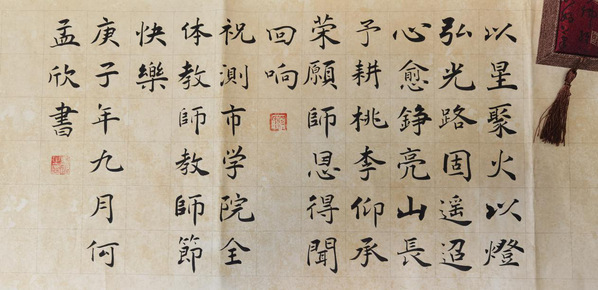 以星聚火以燈
弘光路固遥迢
心愈錚亮山長
予耕桃李仰承
榮願師恩得聞
回响
祝測市学院全
体教師教師節
快樂
庚子年九月何
孟欣書